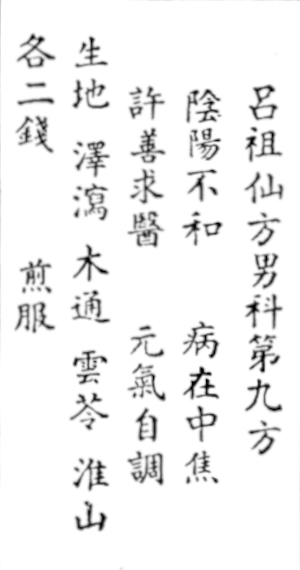 呂祖仙方男科第九方
陰陽不和 病在中焦
許善求醫 元氣自調
生地 澤瀉 木通 雲苓 淮山
各二錢 煎服